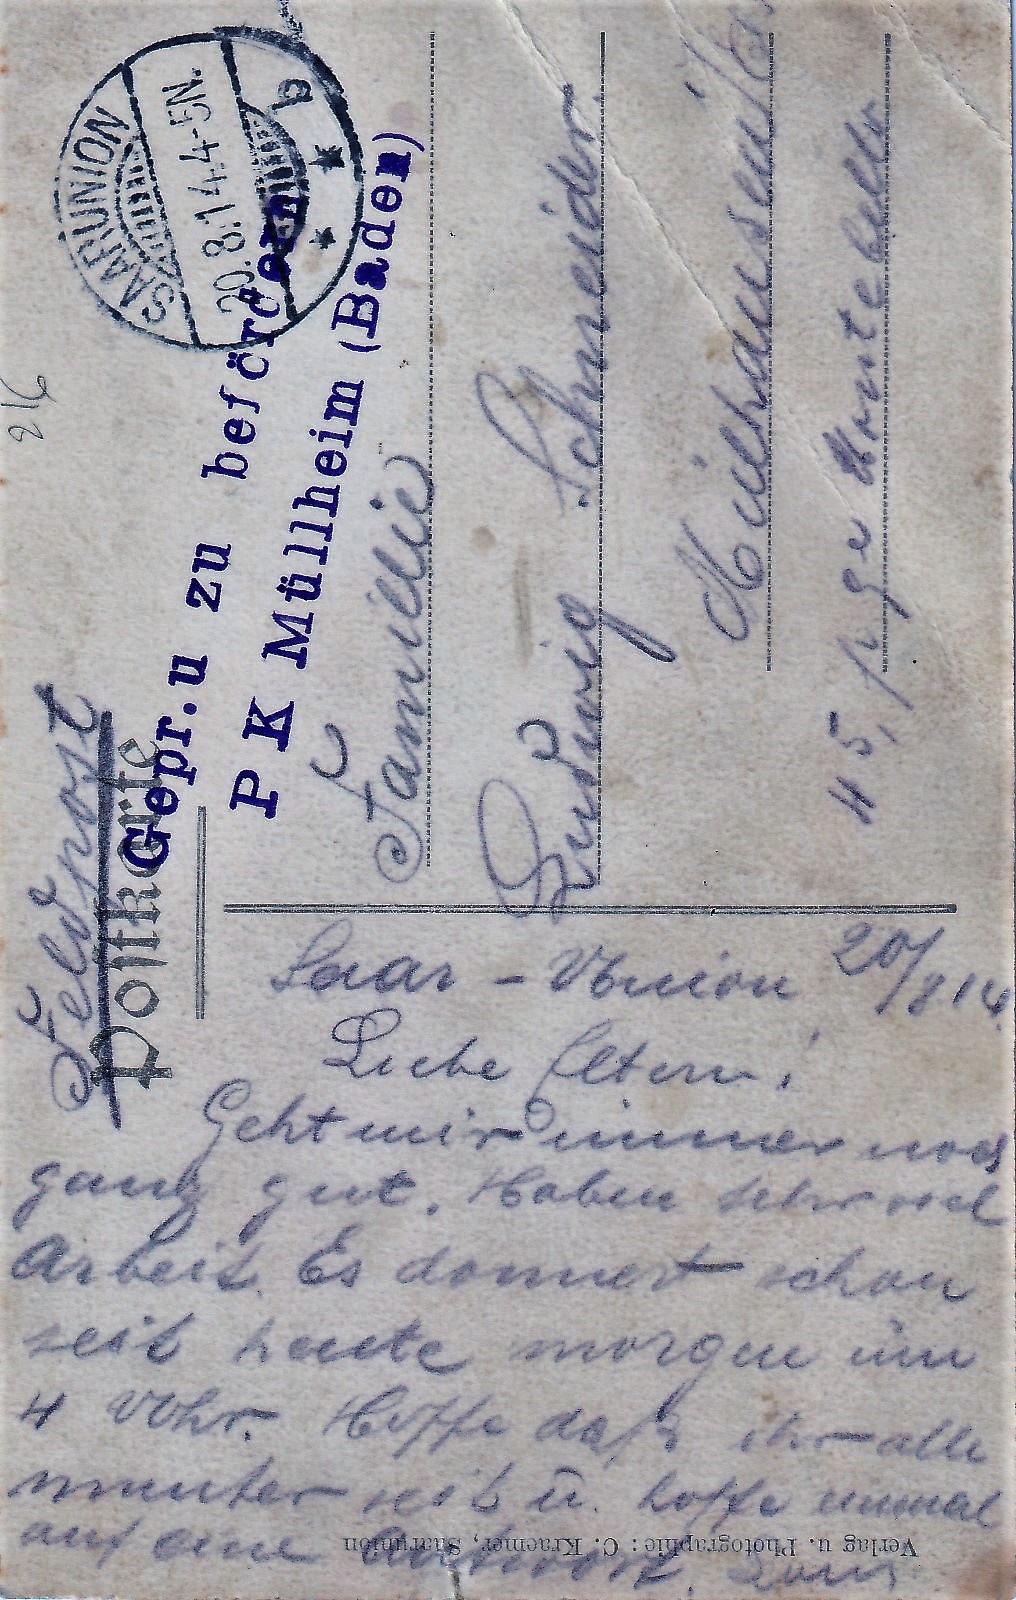 Feldpost
Postkarte
Gepr. u zu befördern
P K Müllheim (Baden)
SAARUNION
20.8.14.4-5N.
b
Familie
Ludwig Schneider
Mülhausen i/E
45, Montebello
Saar-Union 20/8 14.
Liebe Eltern!
Geht mir immer noch
ganz gut. Haben sehr viel
Arbeit. Es donnert schon
seit heute morgen um
4 Uhr. Hoffe daß ihr alle
munter seit u. hoffe einmal
auf eine Antwort.
Verlag u. Photographie: C. Kraemer, Saarunion